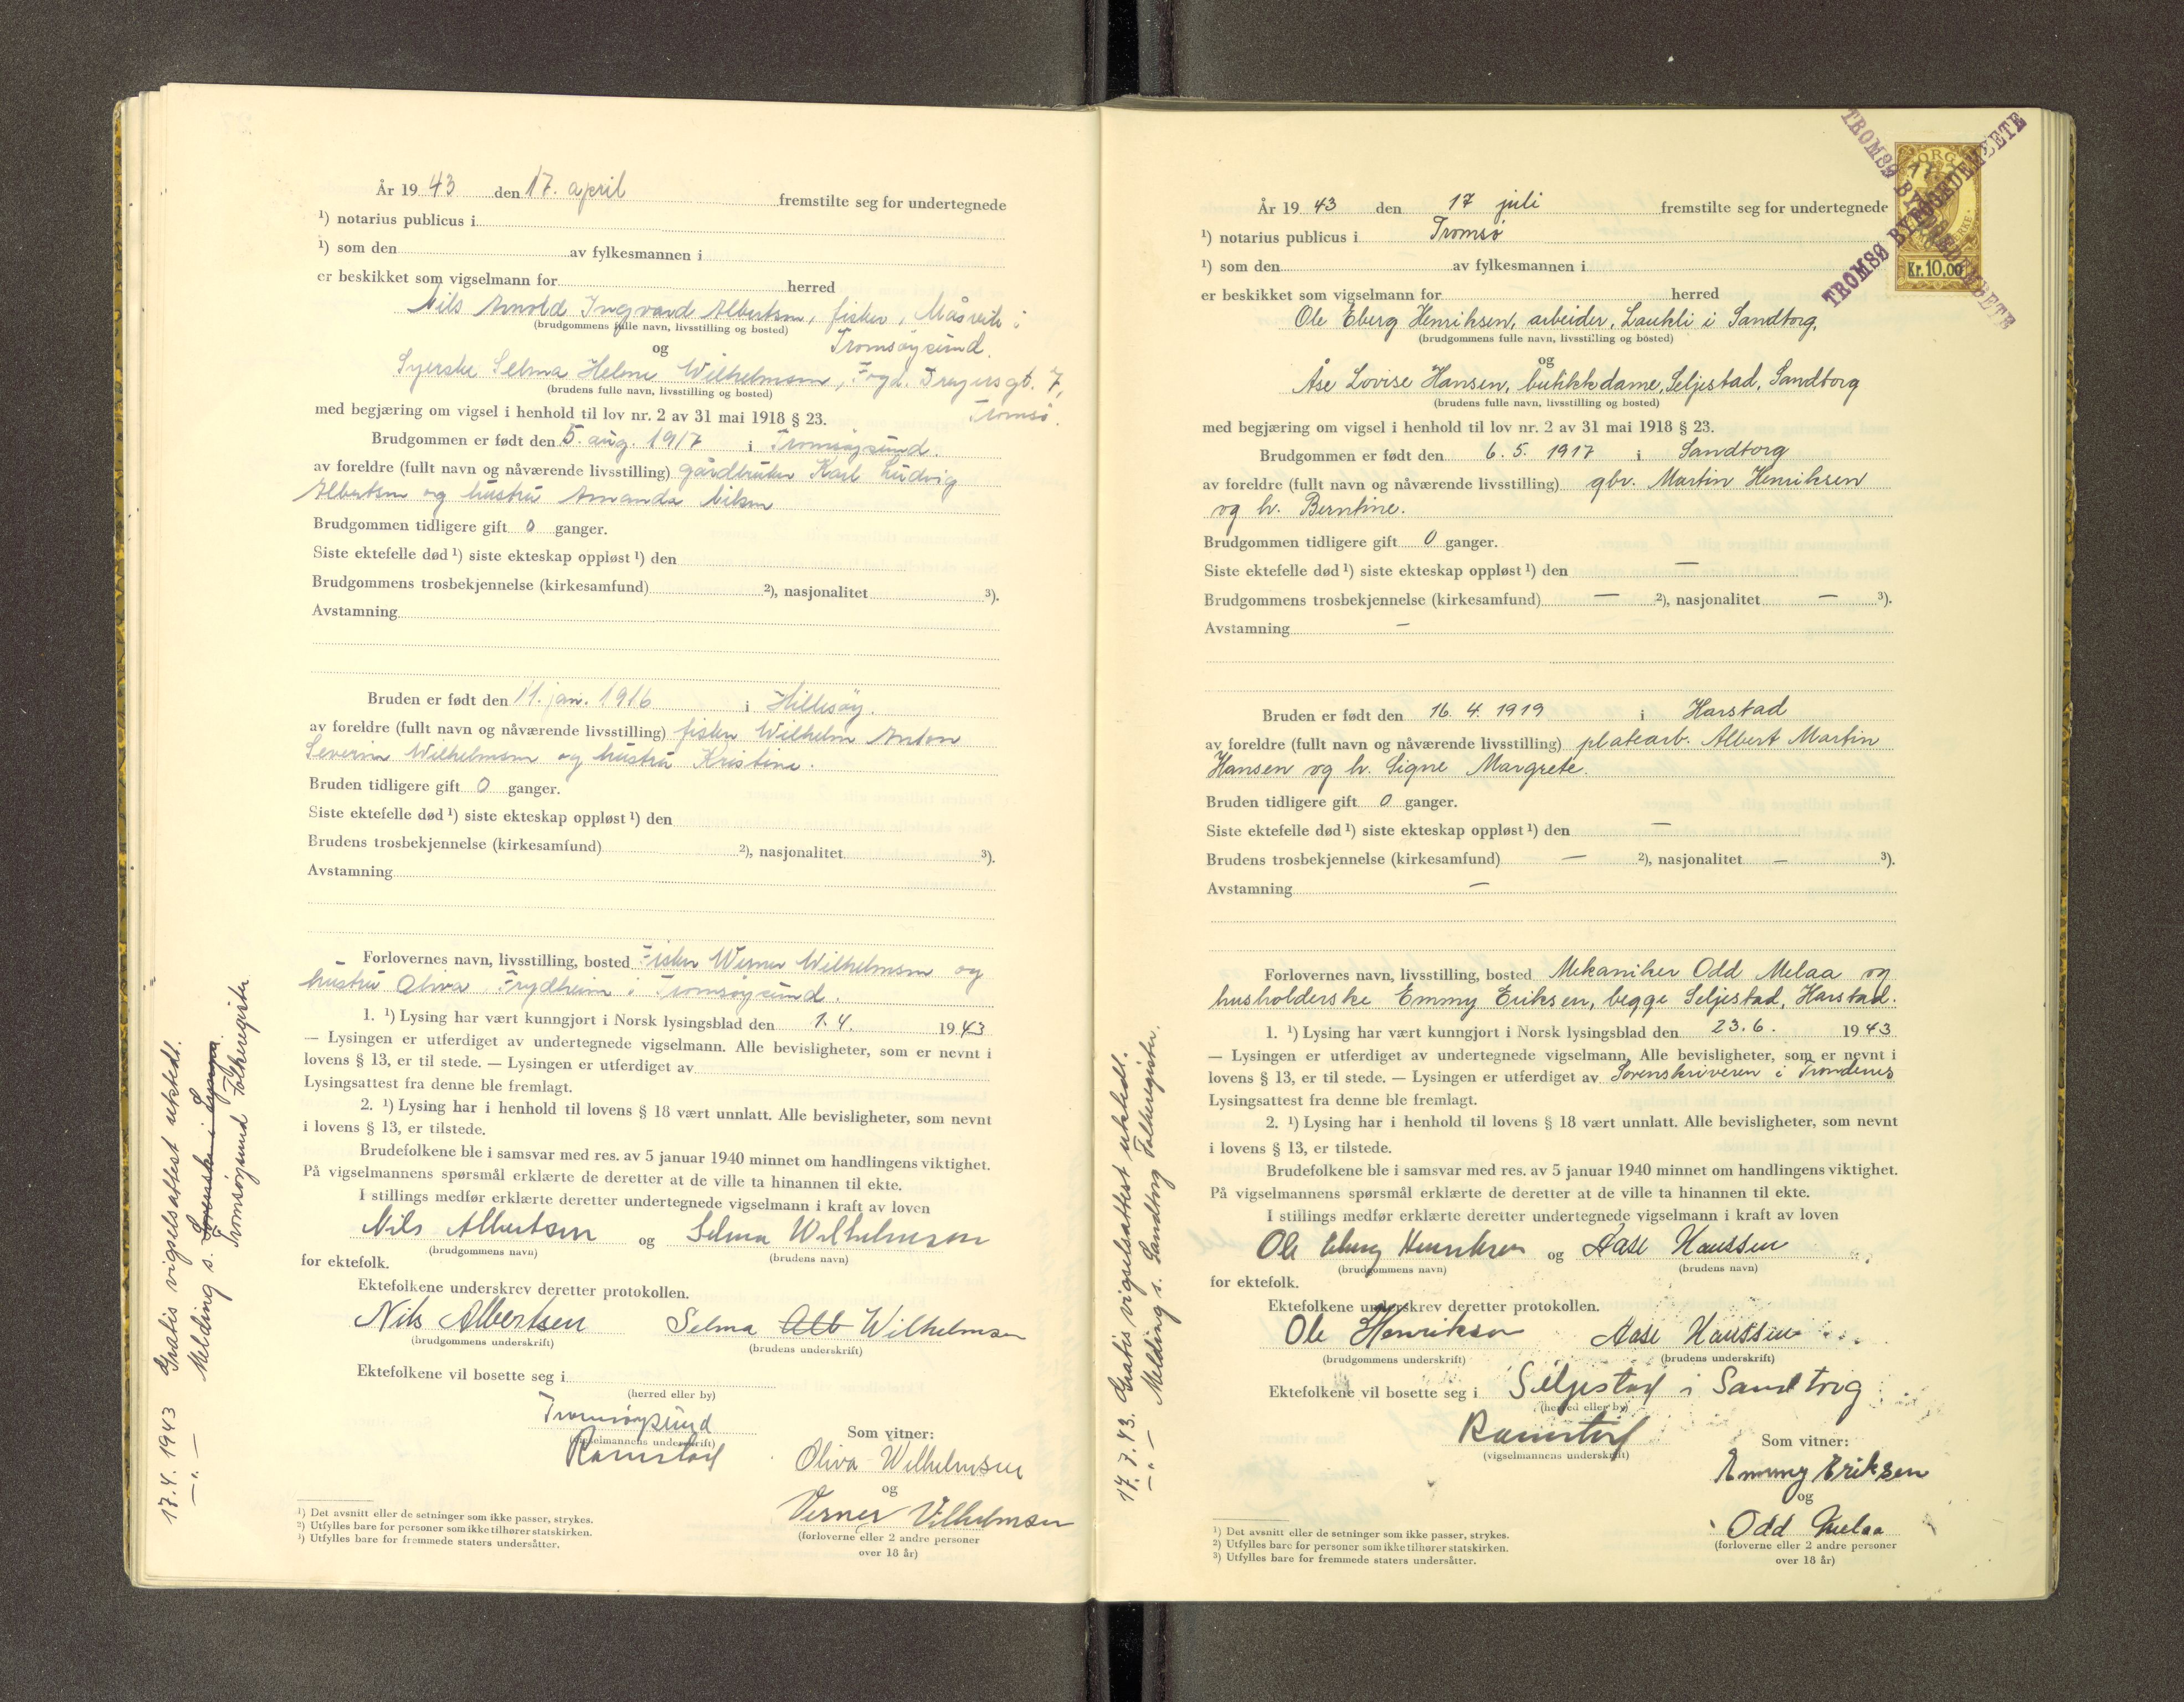 År 1943 den 17. april fremstilte seg for undertegnede
¹) notarius publicus i
¹) som den av fylkesmannen i
er beskikket som vigselmann for herred
Nils Arnold Ingvard Albertsen, fisker, Måsvik i
(brudgommens fulle navn, livsstilling og bosted)
og Tromsøysund.
Syerske Selma Helene Wilhelmsen, Fogd. Dreyersgt. 7,
(brudens fulle navn, livsstilling og bosted)
Tromsø.
med begjæring om vigsel i henhold til lov nr. 2 av 31 mai 1918 § 23.
Brudgommen er født den 5. aug. 1917 i Tromsøysund.
av foreldre (fullt navn og nåværende livsstilling) gårdbruker Karl Ludvig
Albertsen og hustru Amanda Nilsen
Brudgommen tidligere gift 0 ganger.
Siste ektefelle død ¹) siste ekteskap oppløst ¹) den
Brudgommens trosbekjennelse (kirkesamfund) ²), nasjonalitet ³).
Avstamning
Bruden er født den 11. jan. 1916 i Hillesøy.
av foreldre (fullt navn og nåværende livsstilling) fisker Wilhelm Anton
Severin Wilhelmsen og hustru Kristine.
Bruden tidligere gift 0 ganger.
Siste ektefelle død ¹) siste ekteskap oppløst ¹) den
Brudens trosbekjennelse (kirkesamfund) ²), nasjonalitet ³).
Avstamning
Forlovernes navn, livsstilling, bosted Fisker Werner Wilhelmsen og
hustru Oliva, Frydheim i Tromsøysund.
1. ¹) Lysing har vært kunngjort i Norsk lysingsblad den 1.4. 1943
— Lysingen er utferdiget av undertegnede vigselmann. Alle bevisligheter, som er nevnt i
lovens § 13, er til stede. — Lysingen er utferdiget av
Lysingsattest fra denne ble fremlagt.
2. ¹) Lysing har i henhold til lovens § 18 vært unnlatt. Alle bevisligheter, som nevnt
i lovens § 13, er tilstede.
Brudefolkene ble i samsvar med res. av 5 januar 1940 minnet om handlingens viktighet.
På vigselmannens spørsmål erklærte de deretter at de ville ta hinannen til ekte.
I stillings medfør erklærte deretter undertegnede vigselmann i kraft av loven
Nils Albertsen og Selma Wilhelmsen
(brudgommens navn) (brudens navn)
for ektefolk.
Ektefolkene underskrev deretter protokollen.
Nils Albertsen Selma Alb Wilhelmsen
(brudgommens underskrift) (brudens underskrift)
Ektefolkene vil bosette seg i
(herred eller by)
Tromsøysund
(vigselmannens underskrift)
Ramstad
Som vitner:
Oliva Wilhelmsen
og
Verner Vilhelmsen
(forloverne eller 2 andre personer
over 18 år)
¹) Det avsnitt eller de setninger som ikke passer, strykes.
²) Utfylles bare for personer som ikke tilhører statskirken.
³) Utfylles bare for fremmede staters undersåtter.
17.4.1943 Gratis vigselsattest utstedt.
—"— Melding s. Sorenskr. i Lyngen
Tromsøysund Folkeregister
År 1943 den 17 juli fremstilte seg for undertegnede
¹) notarius publicus i Tromsø
¹) som den av fylkesmannen i
er beskikket som vigselmann for herred
Ole Eberg Henriksen, arbeider, Laukli i Sandtorg,
(brudgommens fulle navn, livsstilling og bosted)
og
Åse Lovise Hansen, butikkdame, Seljestad, Sandtorg
(brudens fulle navn, livsstilling og bosted)
med begjæring om vigsel i henhold til lov nr. 2 av 31 mai 1918 § 23.
Brudgommen er født den 6. 5. 1917 i Sandtorg
av foreldre (fullt navn og nåværende livsstilling) gbr. Martin Henriksen
og h. Berntine.
Brudgommen tidligere gift 0 ganger.
Siste ektefelle død ¹) siste ekteskap oppløst ¹) den —
Brudgommens trosbekjennelse (kirkesamfund) — ²), nasjonalitet — ³).
Avstamning —
Bruden er født den 16. 4. 1919 i Harstad
av foreldre (fullt navn og nåværende livsstilling) platearb. Albert Martin
Hansen og h. Signe Margrete.
Bruden tidligere gift 0 ganger.
Siste ektefelle død ¹) siste ekteskap oppløst ¹) den —
Brudens trosbekjennelse (kirkesamfund) — ²), nasjonalitet — ³).
Avstamning —
Forlovernes navn, livsstilling, bosted Mekaniker Odd Melaa og
husholderske Emmy Eriksen, begge Seljestad, Harstad.
1. ¹) Lysing har vært kunngjort i Norsk lysingsblad den 23.6. 1943
— Lysingen er utferdiget av undertegnede vigselmann. Alle bevisligheter, som er nevnt i
lovens § 13, er til stede. — Lysingen er utferdiget av Sorenskriveren i Trondenes
Lysingsattest fra denne ble fremlagt.
2. ¹) Lysing har i henhold til lovens § 18 vært unnlatt. Alle bevisligheter, som nevnt
i lovens § 13, er tilstede.
Brudefolkene ble i samsvar med res. av 5 januar 1940 minnet om handlingens viktighet.
På vigselmannens spørsmål erklærte de deretter at de ville ta hinannen til ekte.
I stillings medfør erklærte deretter undertegnede vigselmann i kraft av loven
Ole Eberg Henriksen og Aase Hanssen
(brudgommens navn) (brudens navn)
for ektefolk.
Ektefolkene underskrev deretter protokollen.
Ole Henriksen Aase Hanssen
(brudgommens underskrift) (brudens underskrift)
Ektefolkene vil bosette seg i Seljestad i Sandtorg
(herred eller by)
Ramstad
(vigselmannens underskrift)
Som vitner:
Emmy Eriksen
og
Odd Melaa
(forloverne eller 2 andre personer
over 18 år)
¹) Det avsnitt eller de setninger som ikke passer, strykes.
²) Utfylles bare for personer som ikke tilhører statskirken.
³) Utfylles bare for fremmede staters undersåtter.
17.7.43. Gratis vigselsattest utstedt.
—"— Melding s. Sandtorg Folkeregister.
TROMSØ BYFOGEDEMBETE
TROMSØ BYFOGEDEMBETE
NORGE
Kr. 10.00